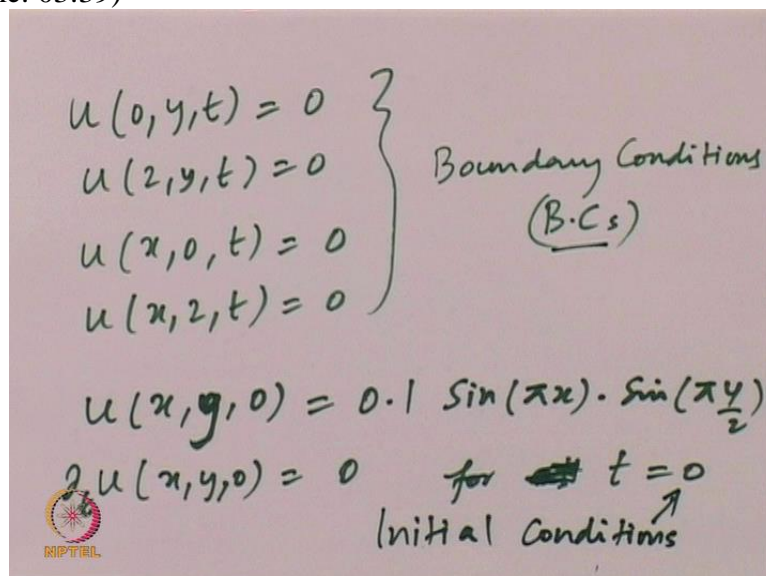 u(0,y,t) = 0
u(2,y,t) = 0
u(x,0,t) = 0
u(x,2,t) = 0
Boundary Conditions
(B.Cs)
u(x,y,0) = 0.1 Sin(πx). Sin(πy/2)
∂ₜu(x,y,0) = 0 for t = 0
Initial Conditions
NPTEL